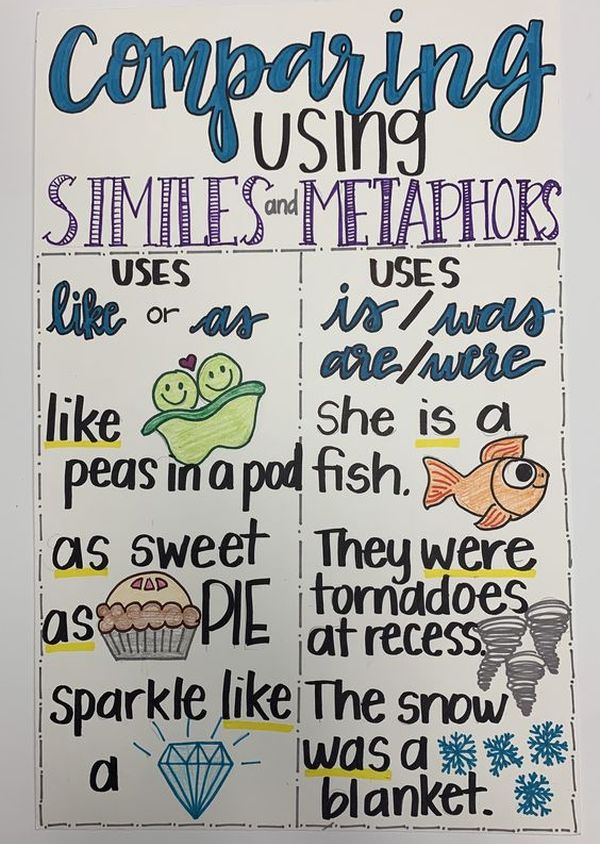 Comparing
using
SIMILES and METAPHORS
USES
like or as
like
peas in a pod
as sweet
as PIE
sparkle like
a
USES
is/was
are/were
She is a
fish.
They were
tornadoes
at recess.
The snow
was a
blanket.